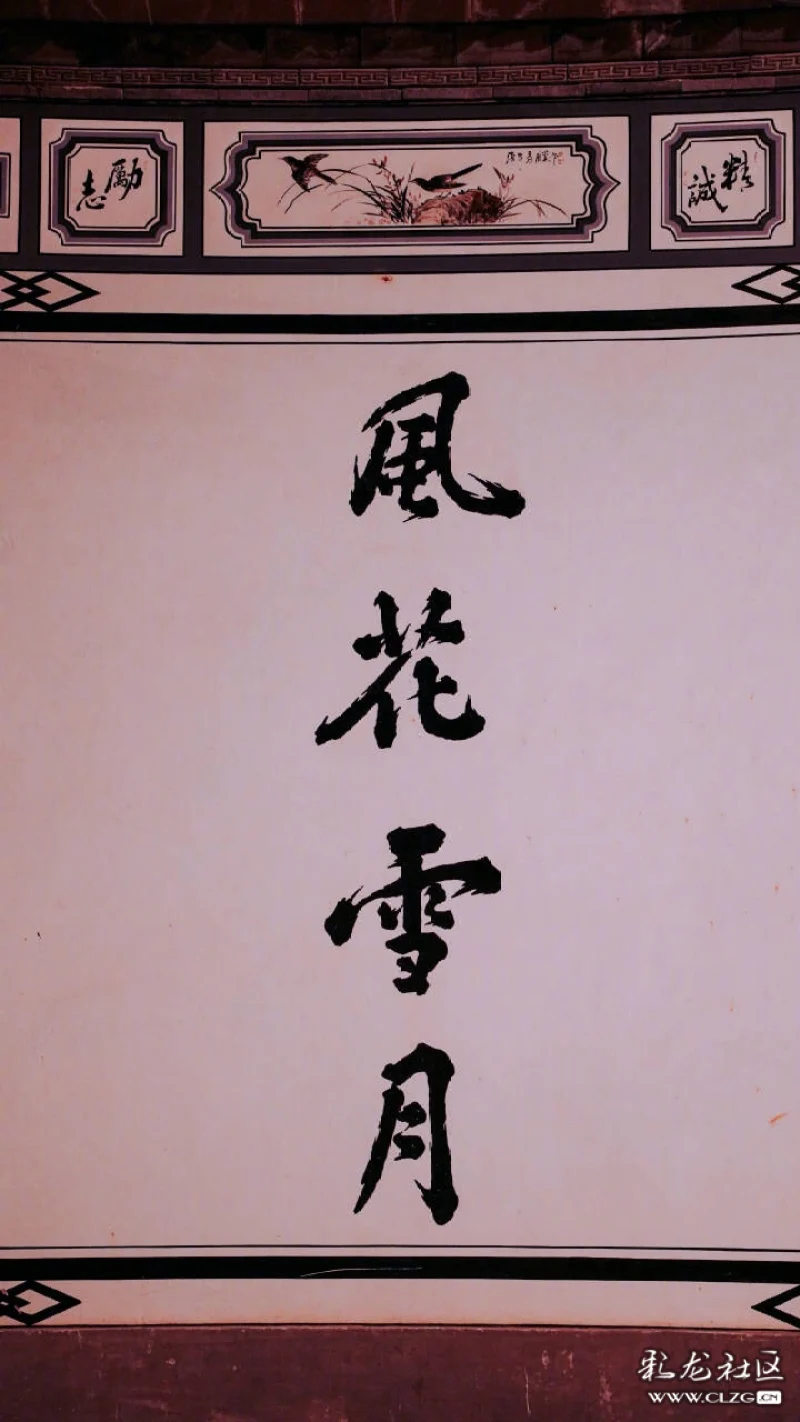 勵志
精誠
風花雪月
彩龙社区
WWW.CLZG.CN